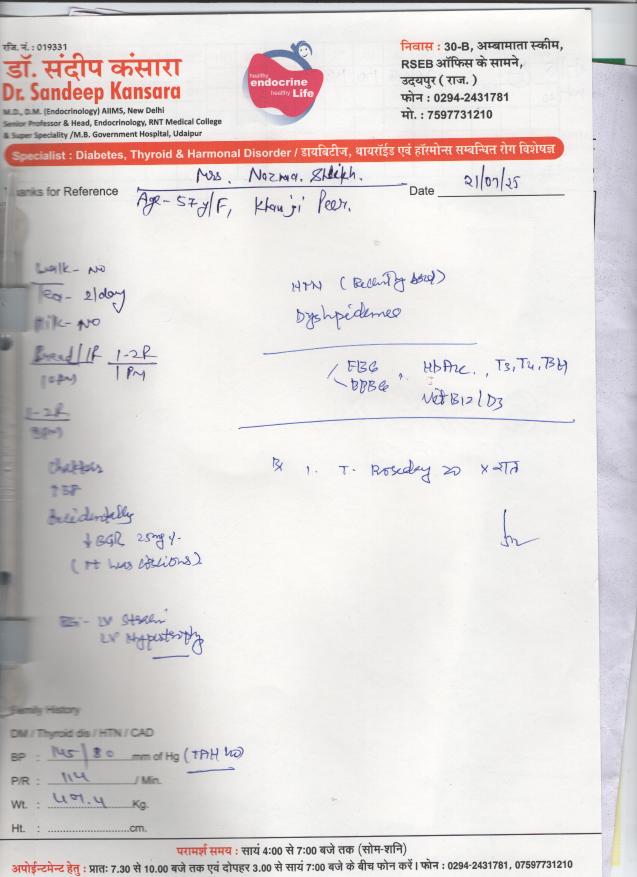 रजि. नं. : 019331
डॉ. संदीप कंसारा
Dr. Sandeep Kansara
M.D., D.M. (Endocrinology) AIIMS, New Delhi
Senior Professor & Head, Endocrinology, RNT Medical College
& Super Speciality /M.B. Government Hospital, Udaipur
healthy
endocrine
healthy Life
निवास : 30-B, अम्बामाता स्कीम,
RSEB ऑफिस के सामने,
उदयपुर ( राज. )
फोन : 0294-2431781
मो. : 7597731210
Specialist : Diabetes, Thyroid & Harmonal Disorder / डायबिटीज, थायरॉईड एवं हॉरमोन्स सम्बन्धित रोग विशेषज्ञ
Thanks for Reference
Mrs.
Date
21/07/25
Age - 57 y/F, Khanji Peer.
Walk - NO
Tea - 2/day
Milk - NO
Bread/1R 1-2R
10PM 1PM
1-2R
8PM
HTN (Recently
FBG
HbA1c, T3, T4,
Vit B12/D3
Rx 1. T. Roseday 20 x रात
↑BP
Accidentally
↓ BGR 25mg%
LV Strain
LV Hypertrophy
Family History
DM / Thyroid dis / HTN / CAD
BP : 145/80 mm of Hg
P/R : 114 / Min.
Wt. : Kg.
Ht. : cm.
परामर्श समय : सायं 4:00 से 7:00 बजे तक (सोम-शनि)
अपोईन्टमेन्ट हेतु : प्रातः 7.30 से 10.00 बजे तक एवं दोपहर 3.00 से सायं 7:00 बजे के बीच फोन करें। फोन : 0294-2431781, 07597731210